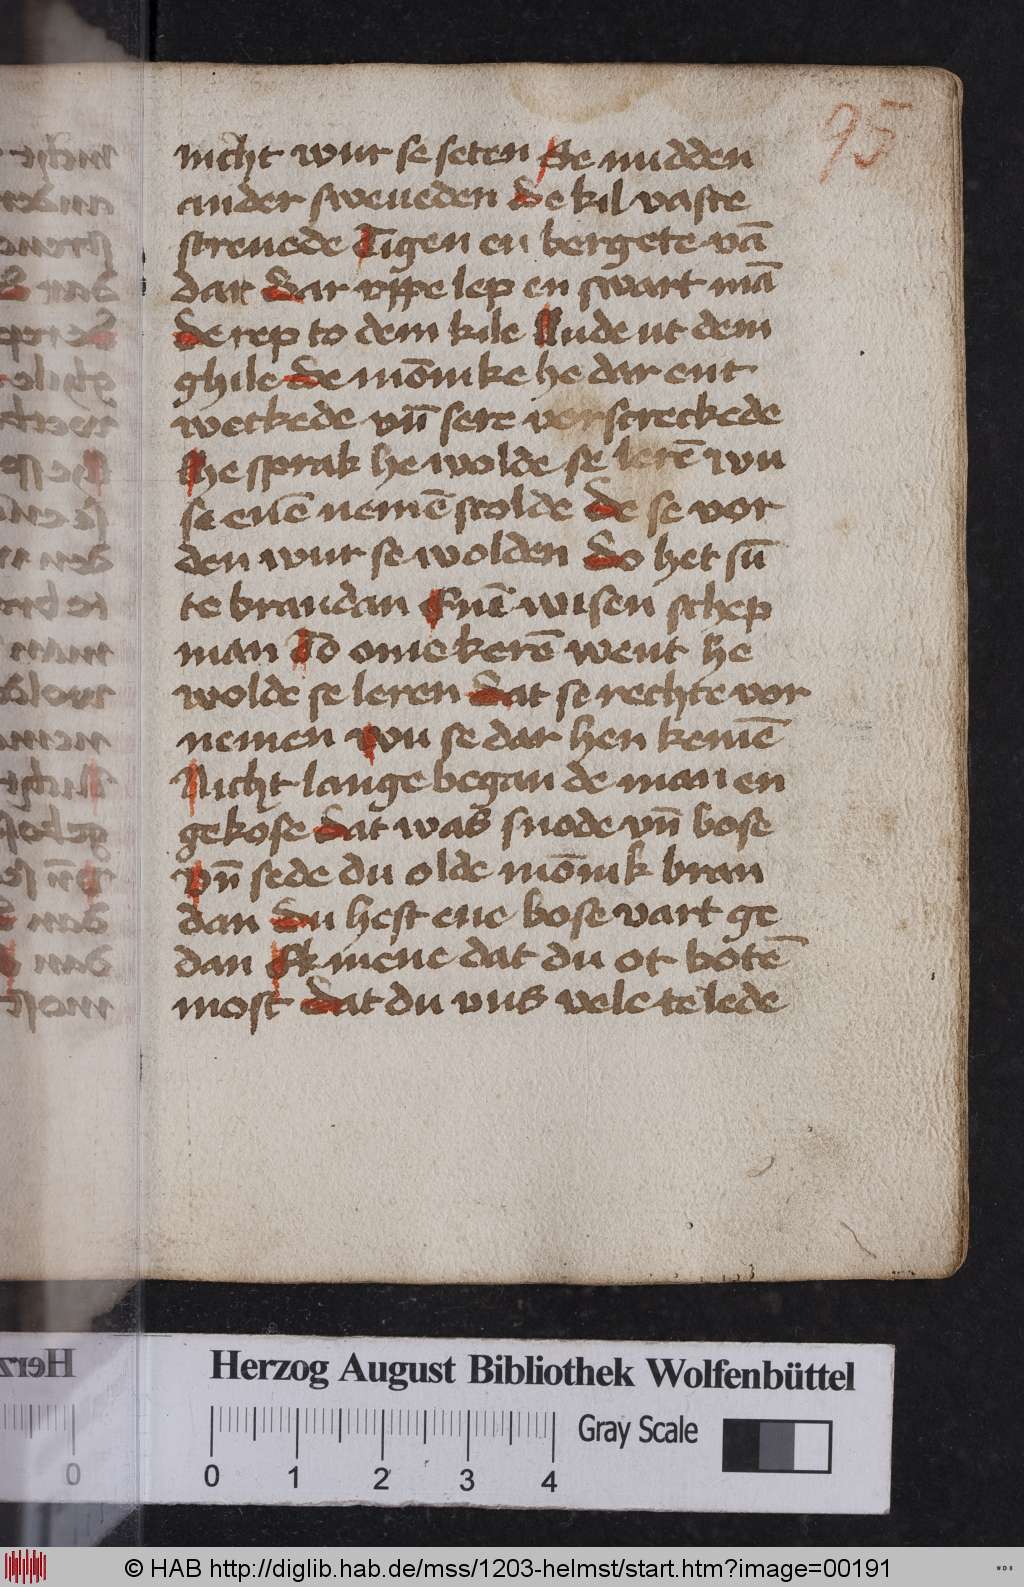 95
nicht wur se seten Se mudden
ander sweueden De kil vaste
streuede Tigen en bergete vā
dar dar vppe lep en swart mā
de rep to dem kile Lude ut dem
ghile de mōnike he dar ent
weckede vn̄ sere verscreckede
He sprak he wolde se lerē wu
se euē nemē scolde de se vor
den wur se wolden Do het sū
te brandan Enē wisen schep
man To ome kerē went he
wolde se leren dat se rechte vor
nemen wu se dar hen kemē
Nicht lange began de man en
gekose dat was snode vn̄ bose
Vn̄ sede du olde mōnik bran
dan du hest ene bose vart ge
dan Ek mene dat du ot botē
most dat du vns vele te lede
Herzog August Bibliothek Wolfenbüttel
0 1 2 3 4 Gray Scale
© HAB http://diglib.hab.de/mss/1203-helmst/start.htm?image=00191